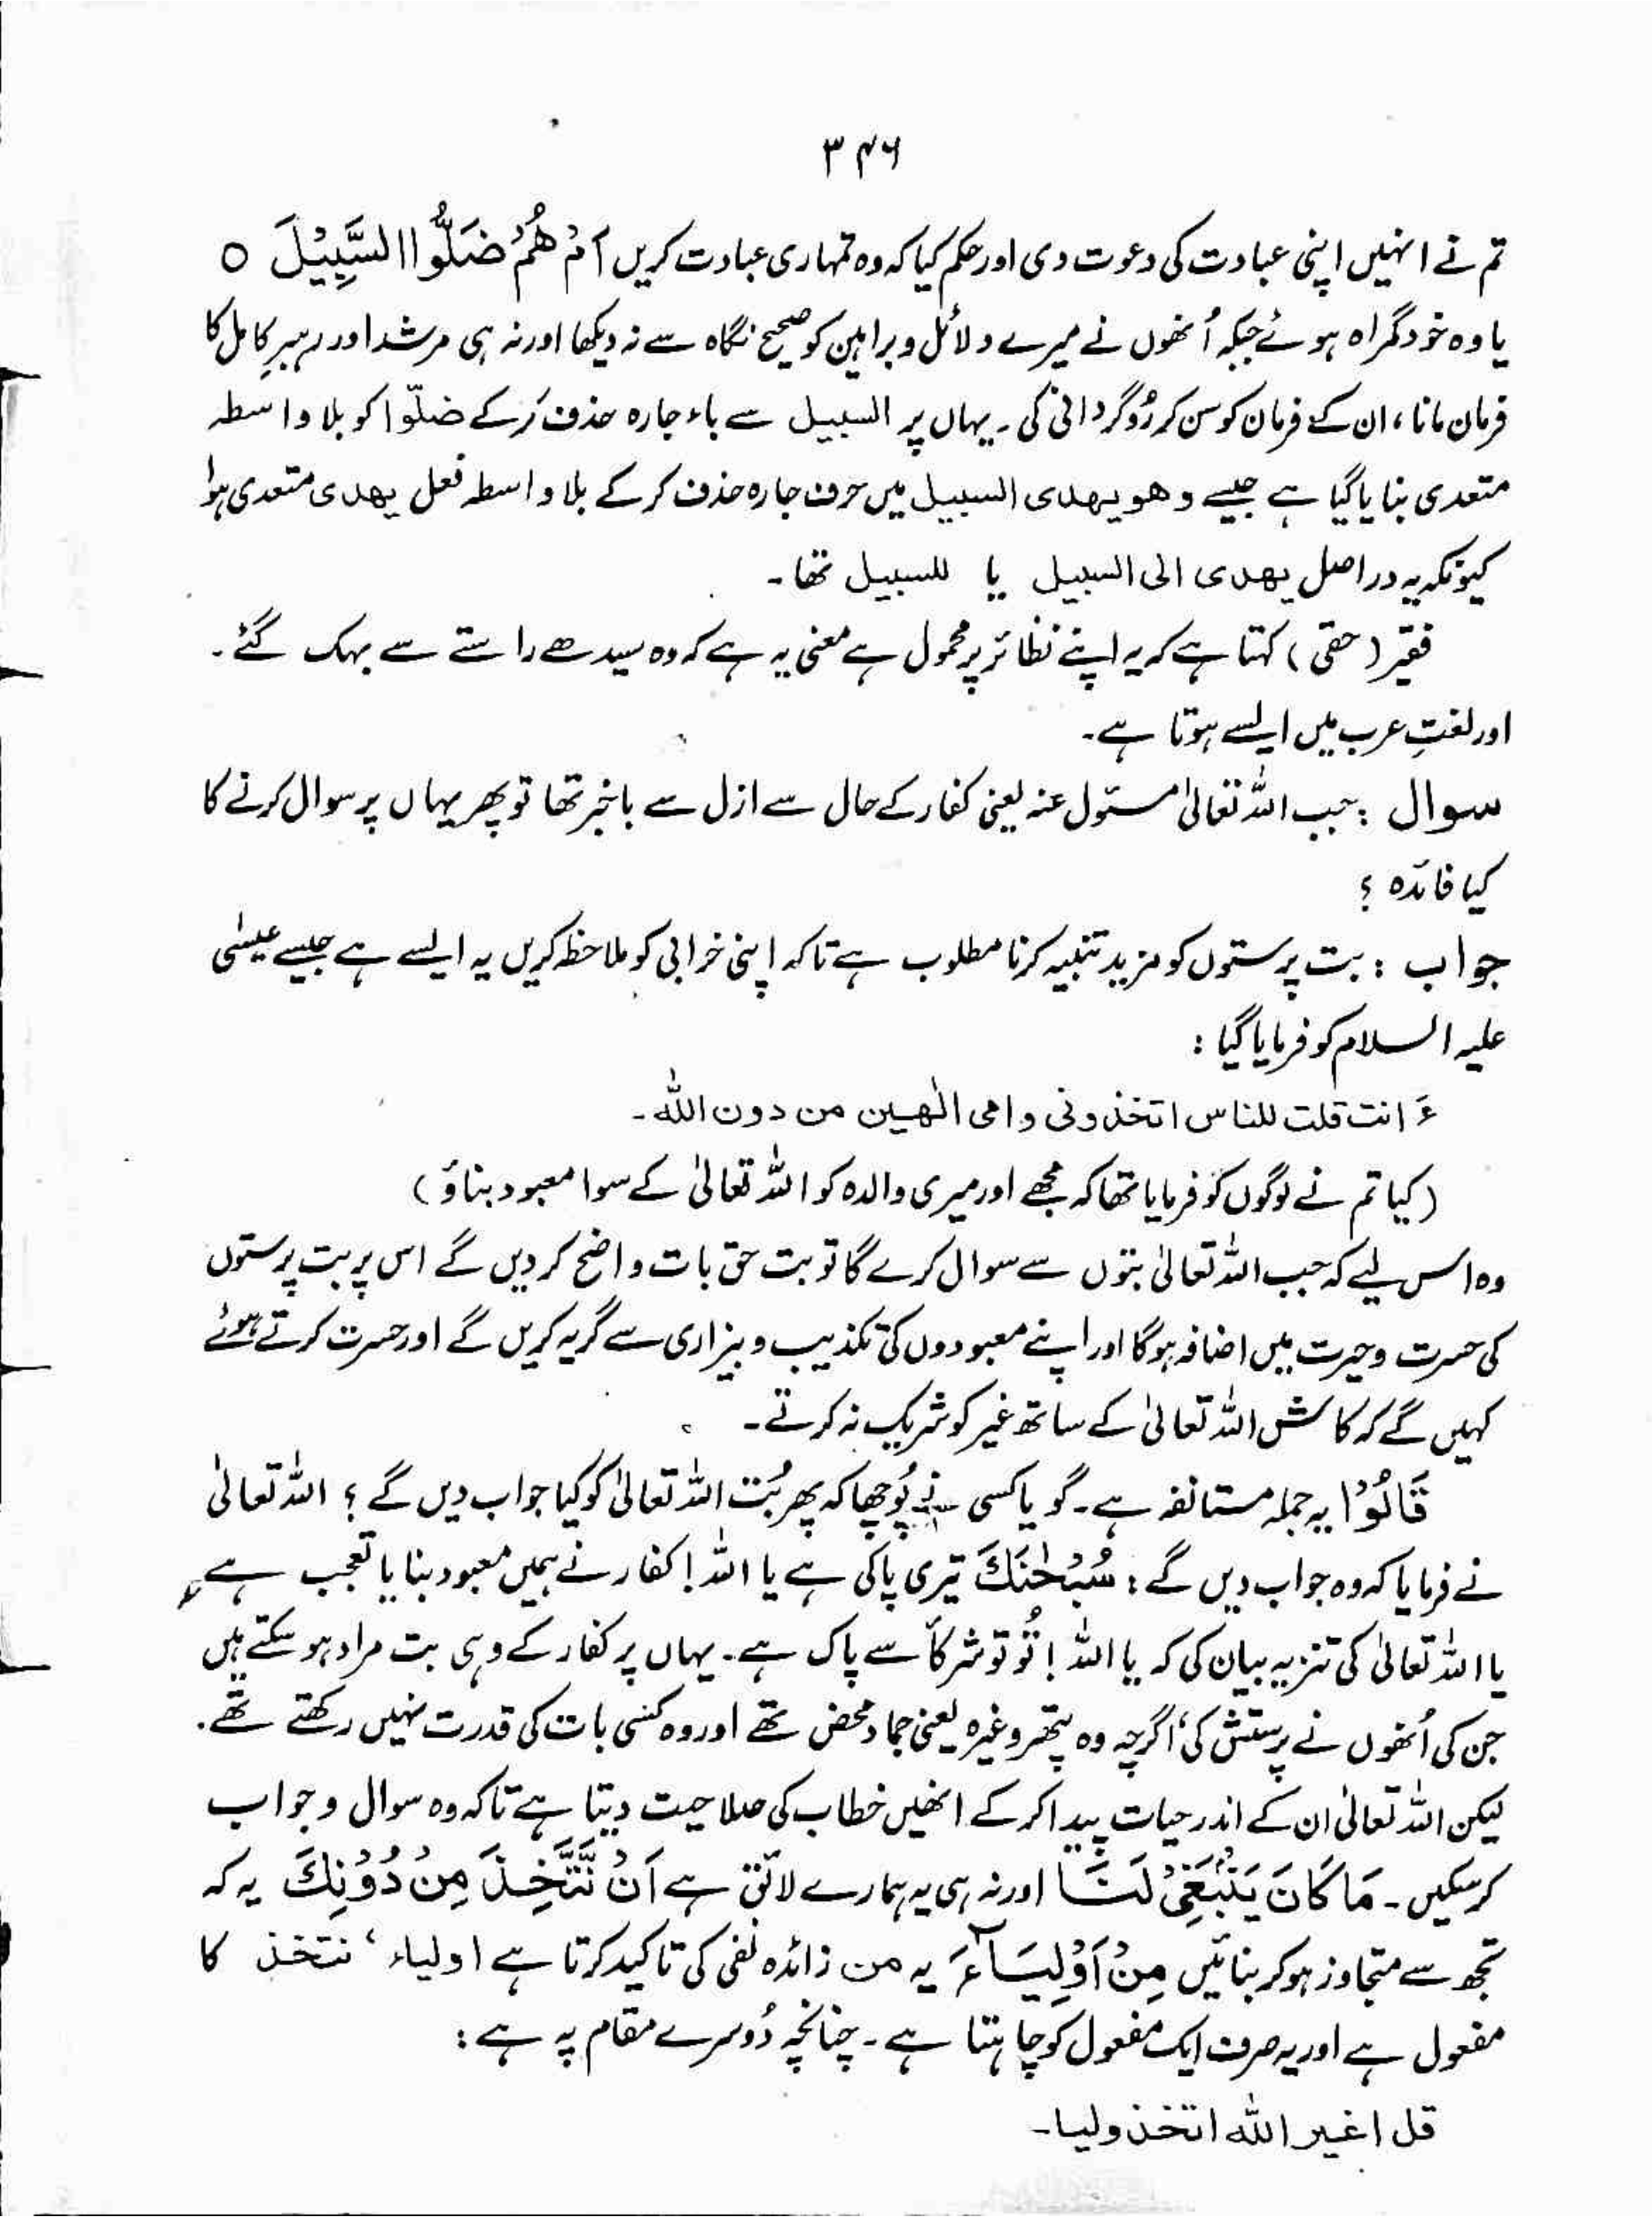 ۳۴۶
تم نے انہیں اپنی عبادت کی دعوت دی اور حکم کیا کہ وہ تمہاری عبادت کریں اَمْ هُمْ ضَلُّوا السَّبِيْلَ ○
یا وہ خود گمراہ ہوئے جبکہ اُنھوں نے میرے دلائل و براہین کو صحیح نگاہ سے نہ دیکھا اور نہ ہی مرشد اور رہبرِ کامل کا
فرمان مانا، ان کے فرمان کو سن کر رُوگردانی کی۔ یہاں پر السبیل سے باء جارہ حذف کر کے ضلّوا کو بلا واسطہ
متعدی بنایا گیا ہے جیسے وھو یھدی السبیل میں حرف جارہ حذف کر کے بلا واسطہ فعل یھدی متعدی ہوا
کیونکہ یہ دراصل یھدی الی السبیل یا للسبیل تھا۔
فقیر (حقی) کہتا ہے کہ یہ اپنے نظائر پر محمول ہے معنی یہ ہے کہ وہ سیدھے راستے سے بہک گئے۔
اور لغتِ عرب میں ایسے ہوتا ہے۔
سوال : جب اللہ تعالیٰ مسئول عنہ یعنی کفار کے حال سے ازل سے باخبر تھا تو پھر یہاں پر سوال کرنے کا
کیا فائدہ ؟
جواب : بت پرستوں کو مزید تنبیہ کرنا مطلوب ہے تاکہ اپنی خرابی کو ملاحظہ کریں یہ ایسے ہے جیسے عیسٰی
علیہ السلام کو فرمایا گیا :
ءَ انت قلت للناس اتخذونی وامی الٰھین من دون اللہ۔
(کیا تم نے لوگوں کو فرمایا تھا کہ مجھے اور میری والدہ کو اللہ تعالیٰ کے سوا معبود بناؤ)
وہ اس لیے کہ جب اللہ تعالیٰ بتوں سے سوال کرے گا تو بت حق بات واضح کر دیں گے اس پر بت پرستوں
کی حسرت و حیرت میں اضافہ ہوگا اور اپنے معبودوں کی تکذیب و بیزاری سے گریہ کریں گے اور حسرت کرتے ہوئے
کہیں گے کہ کاش اللہ تعالیٰ کے ساتھ غیر کو شریک نہ کرتے۔
قَالُوْا یہ جملہ مستانفہ ہے۔ گویا کسی نے پُوچھا کہ پھر بُت اللہ تعالیٰ کو کیا جواب دیں گے ؟ اللہ تعالیٰ
نے فرمایا کہ وہ جواب دیں گے : سُبْحٰنَكَ تیری پاکی ہے یا اللہ! کفار نے ہمیں معبود بنایا تعجب ہے
یا اللہ تعالیٰ کی تنزیہ بیان کی کہ یا اللہ ! تُو تو شرکأ سے پاک ہے۔ یہاں پر کفار کے وہی بت مراد ہو سکتے ہیں
جن کی اُنھوں نے پرستش کی، اگرچہ وہ پتھر وغیرہ یعنی جماد محض تھے اور وہ کسی بات کی قدرت نہیں رکھتے تھے۔
لیکن اللہ تعالیٰ ان کے اندر حیات پیدا کر کے انھیں خطاب کی صلاحیت دیتا ہے تاکہ وہ سوال و جواب
کر سکیں۔ مَا كَانَ يَنْۢبَغِيْ لَنَا اور نہ ہی یہ ہمارے لائق ہے اَنْ نَّتَّخِذَ مِنْ دُوْنِكَ یہ کہ
تجھ سے متجاوز ہو کر بنائیں مِنْ اَوْلِيَآءَ یہ من زائدہ نفی کی تاکید کرتا ہے اولیاء، نتخذ کا
مفعول ہے اور یہ صرف ایک مفعول کو چاہتا ہے۔ چنانچہ دُوسرے مقام پہ ہے :
قل اغیر اللہ اتخذ ولیا۔